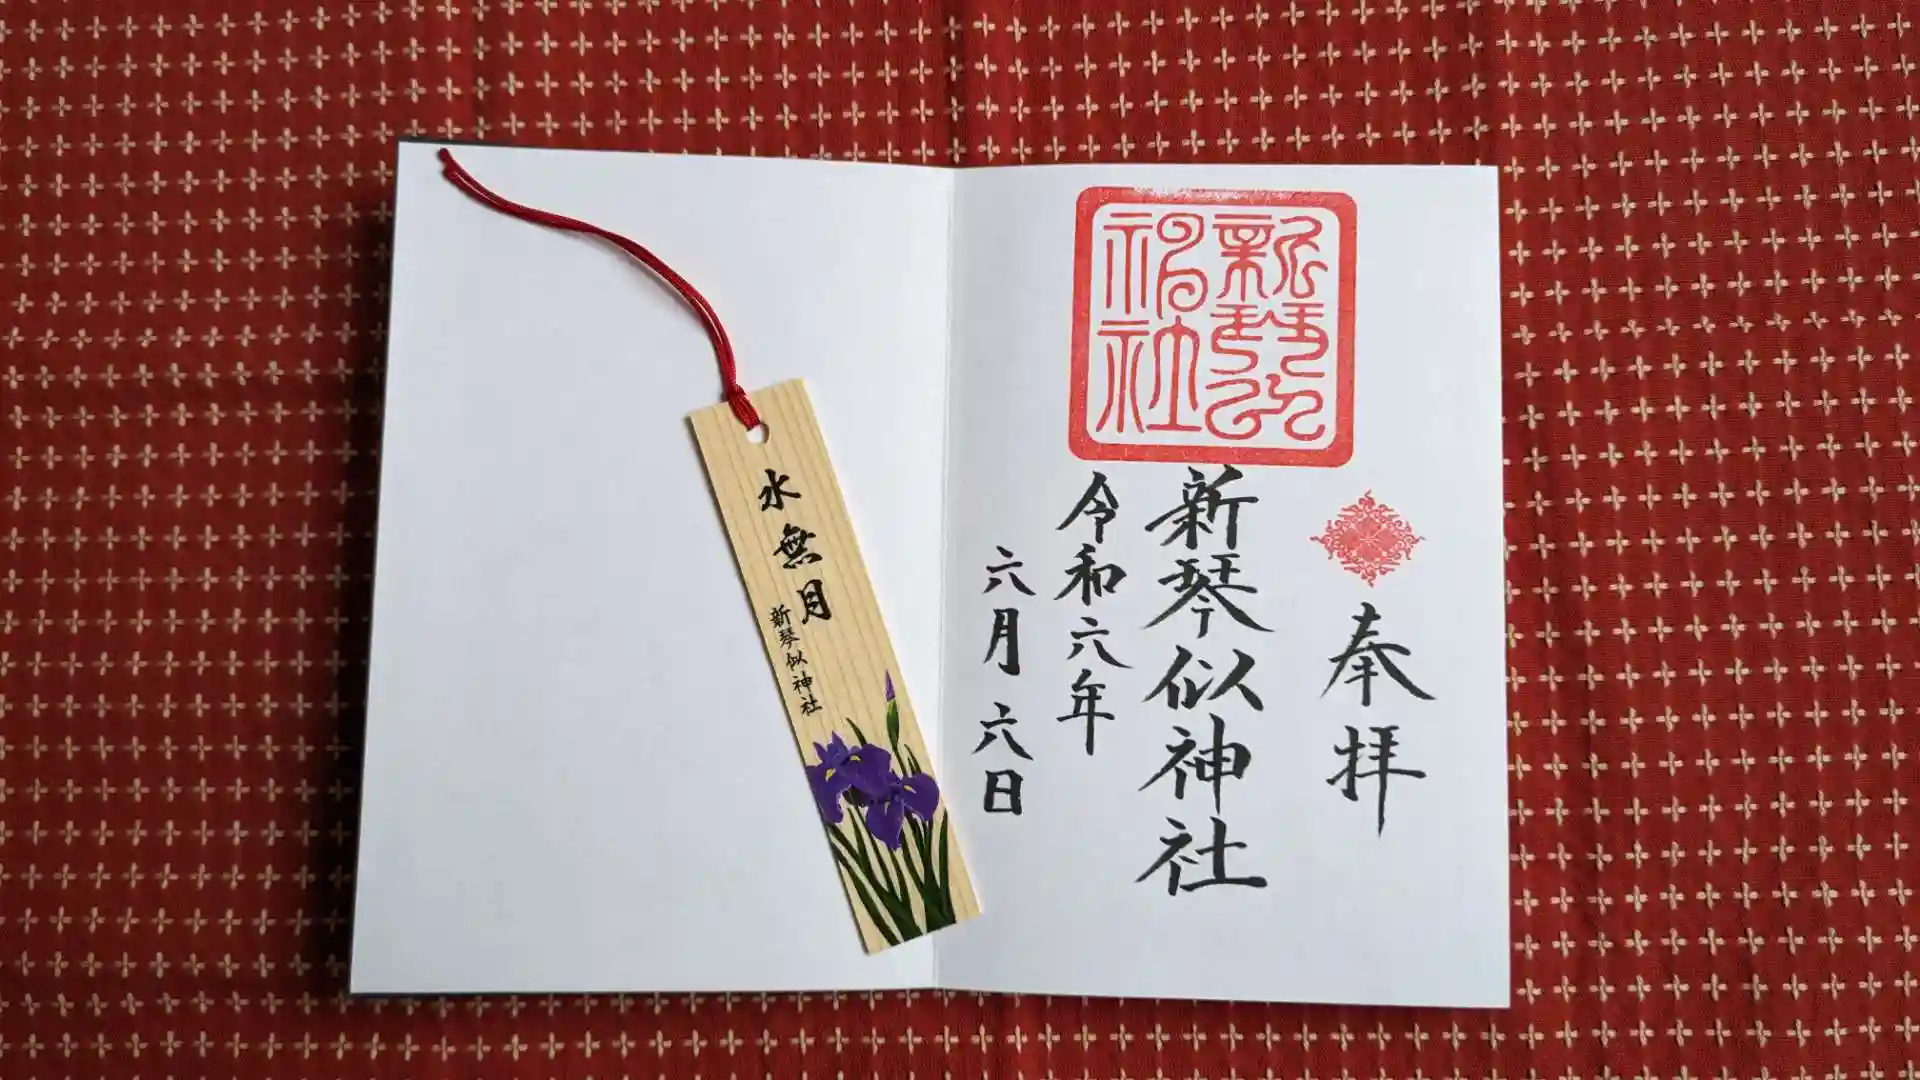 奉拝
新琴似神社
令和六年
六月六日
新琴似
神社
水無月
新琴似神社